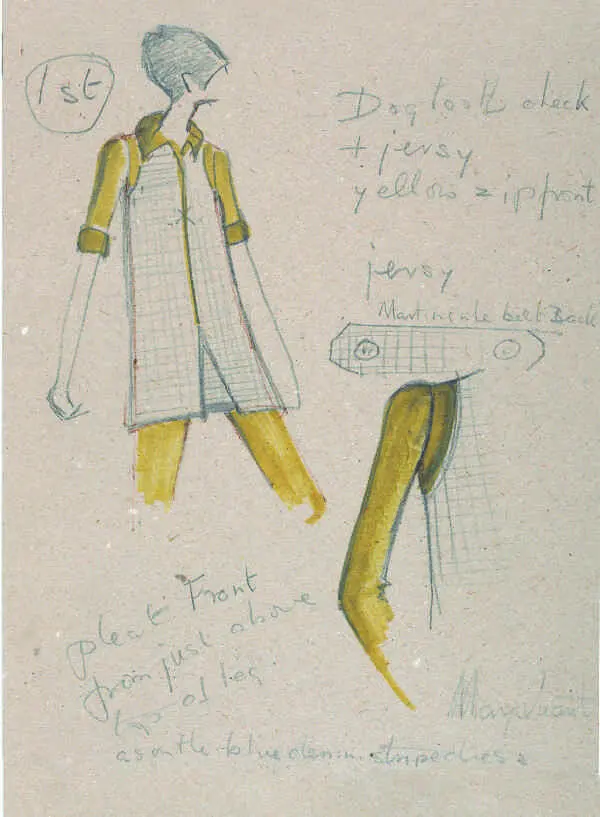 1st
Dogtooth check
+ jersy
yellow zip front
jersy
Martingale belt Back
pleat Front
from just above
top of leg
as on the blue denim stripe dress
Mary Quant